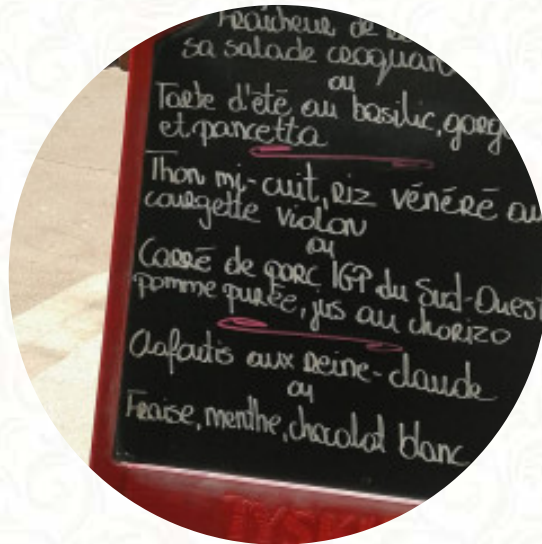 Fraîcheur de
sa salade croquan
ou
Tarte d'été au basilic, gorg
et pancetta
Thon mi-cuit, riz vénéré au
courgette violon
ou
Carré de porc IGP du Sud-Ouest
pomme purée, jus au chorizo
Clafoutis aux reine-claude
ou
Fraise, menthe, chocolat blanc